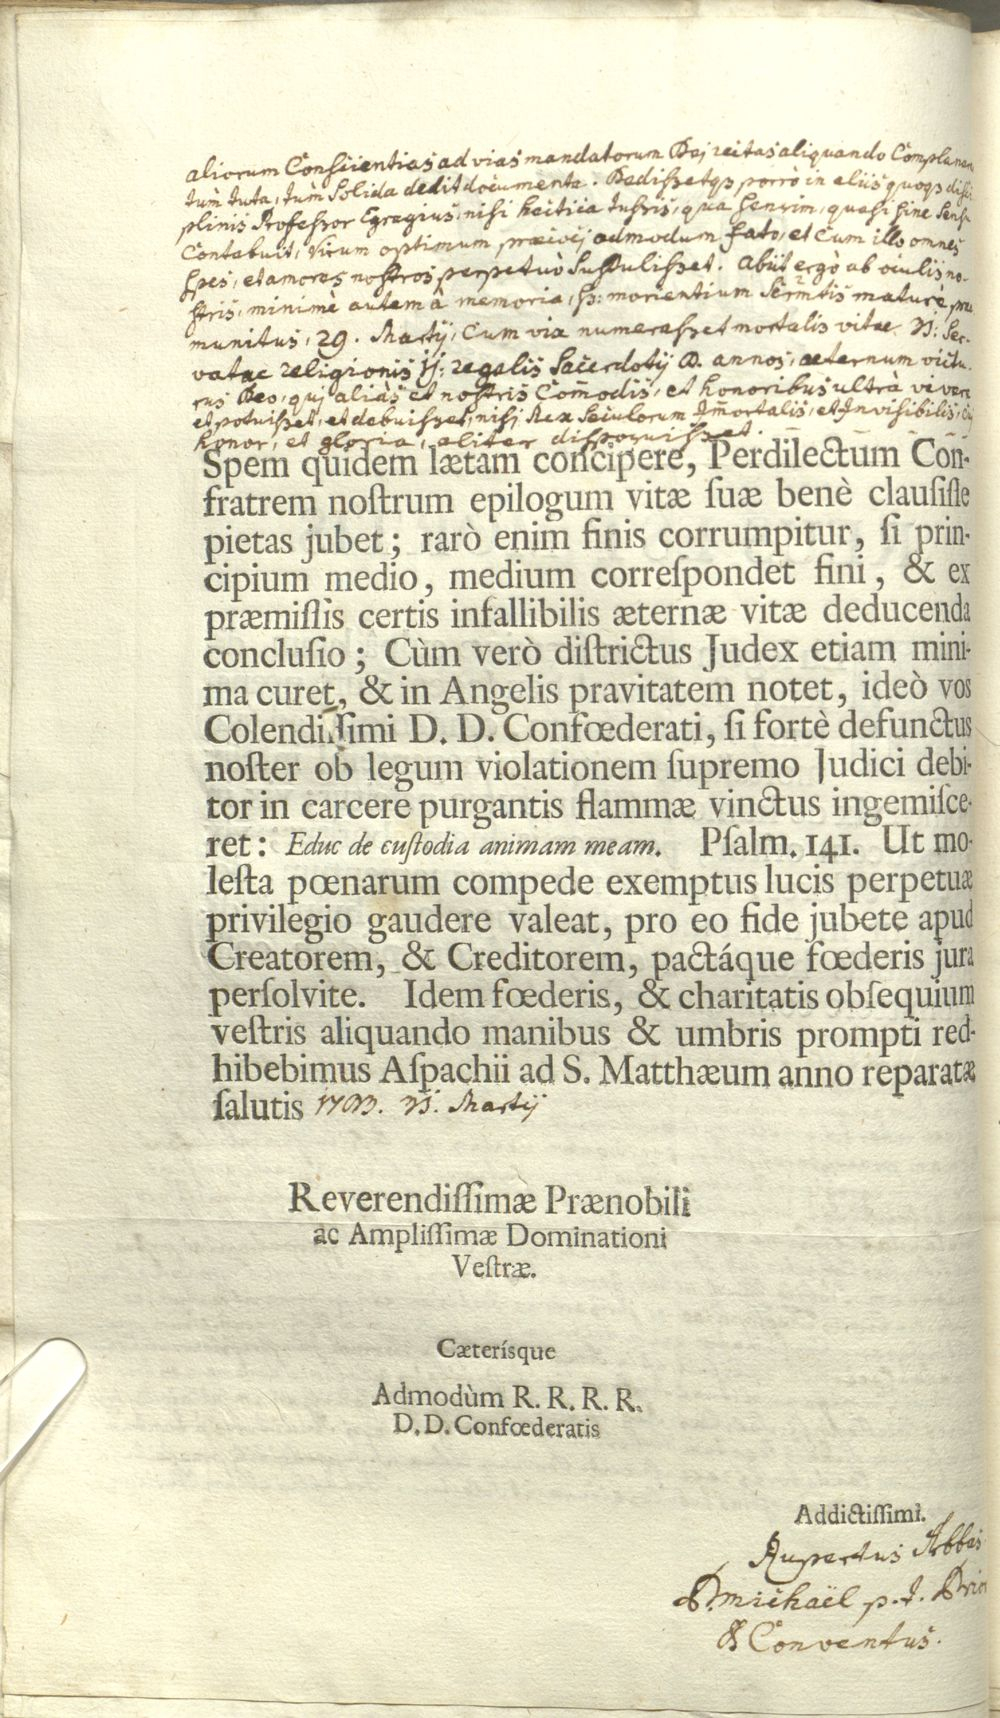 aliorum Conscientias ad vias mandatorum Dej rectas aliquando Complanan
tùm tuta, tùm Solida dedit documenta. Dedissetqs porrò in aliis quoqs disci
plinis Professor Egregius, nisi hectica tussis, qua sensim, quasi sine sensu
Contabuit, virum optimum præivej admodum fato, et Cum illo omnes
spes, et amores nostros perpetuò Sustulisset. Abiit ergò ab oculis no-
stris, minimè autem à memoria, SS: morientium Sacrmtis maturè præ
munitus, 29. Martij, Cum vix numerasset mortalis vitae 31: Ser-
vatae religionis 11: regalis Sacerdotij 8. annos, aeternum victu-
rus Deo, qui aliàs et nostris Com̄odis, et honoribus ultrà vivere
et potuisset, et debuisset, nisj Rex Seculorum Im̄ortalis, et Invisibilis, cuj
honor, et gloria, aliter disposuisset.
Spem quidem lætam concipere, Perdilectum Con-
fratrem noſtrum epilogum vitæ ſuæ benè clauſiſſe
pietas jubet; rarò enim finis corrumpitur, ſi prin-
cipium medio, medium correſpondet fini, & ex
præmiſſis certis infallibilis æternæ vitæ deducenda
concluſio; Cùm verò diſtrictus Judex etiam mini-
ma curet, & in Angelis pravitatem notet, ideò vos
Colendiſſimi D. D. Confœderati, ſi fortè defunctus
noſter ob legum violationem ſupremo Judici debi-
tor in carcere purgantis flammæ vinctus ingemiſce-
ret: Educ de cuſtodia animam meam. Pſalm. 141. Ut mo-
leſta pœnarum compede exemptus lucis perpetuæ
privilegio gaudere valeat, pro eo fide jubete apud
Creatorem, & Creditorem, pactáque fœderis jura
perſolvite. Idem fœderis, & charitatis obſequium
veſtris aliquando manibus & umbris prompti red-
hibebimus Aſpachii ad S. Matthæum anno reparatæ
ſalutis 1793. 31. Martij
Reverendiſſimæ Prænobili
ac Ampliſſimæ Dominationi
Veſtræ.
Cæterísque
Admodùm R. R. R. R.
D. D. Confœderatis
Addictiſſimi.
Rupertus Abbas
P. michaël p. t. Prior
& Conventus.